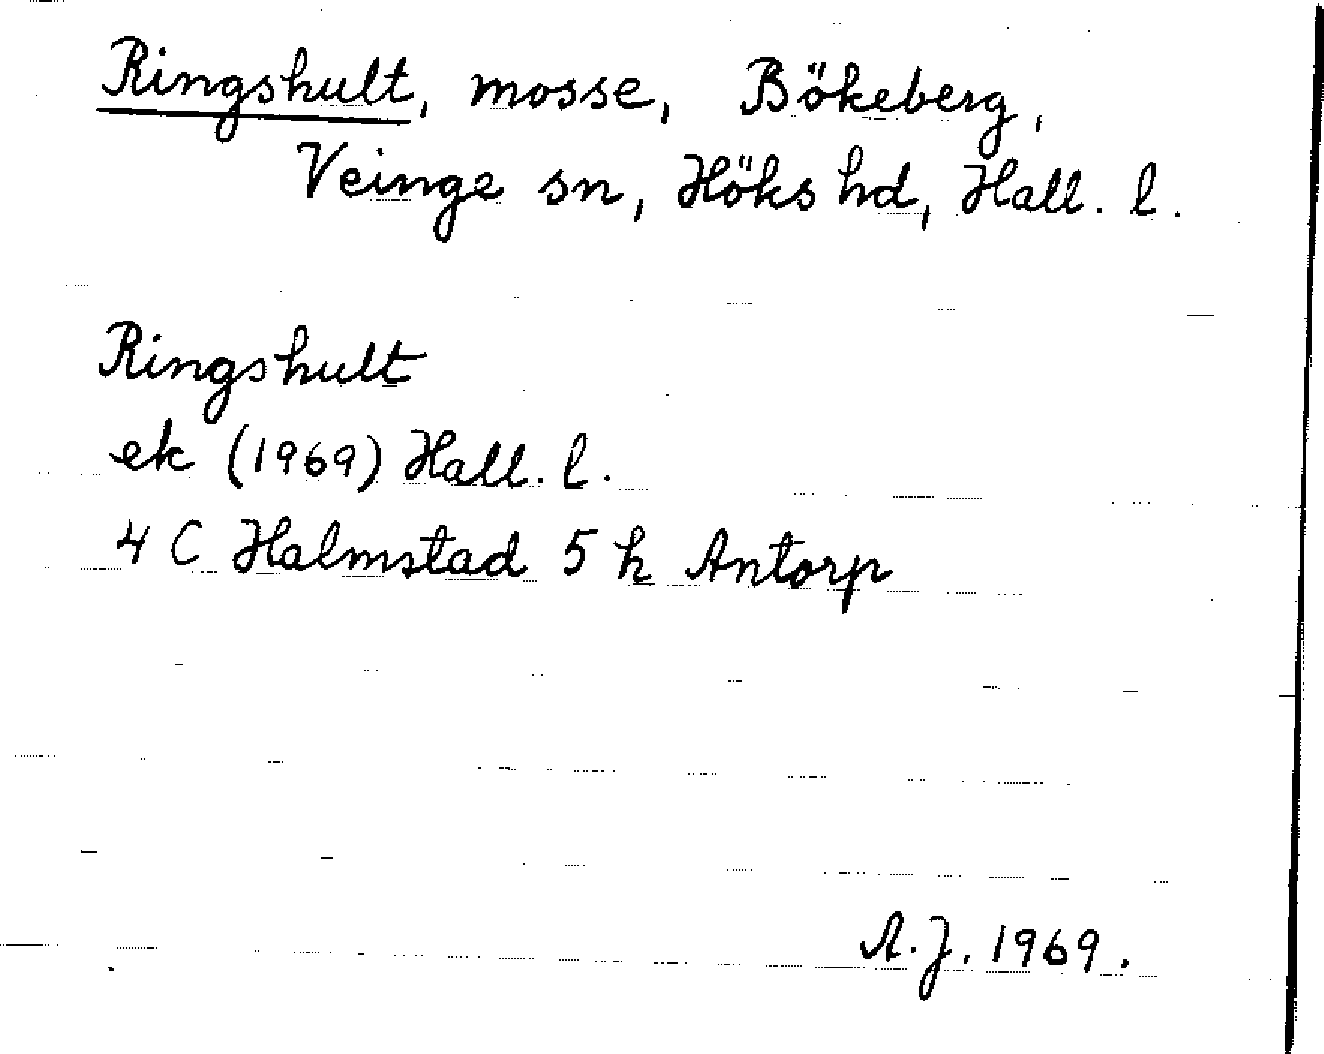 Ringshult, mosse, Bökeberg,
Veinge sn, Höks hd, Hall. l.
Ringshult
ek (1969) Hall. l.
4 C Halmstad 5 h Antorp
A.J. 1969.